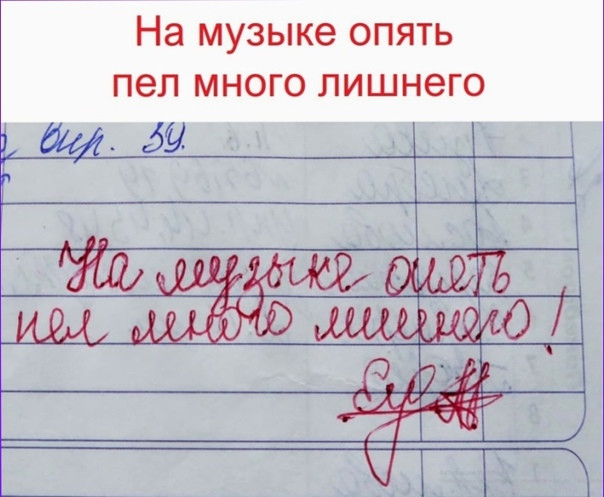 На музыке опять
пел много лишнего
вир. 39.
На музыке опять
пел много лишнего!